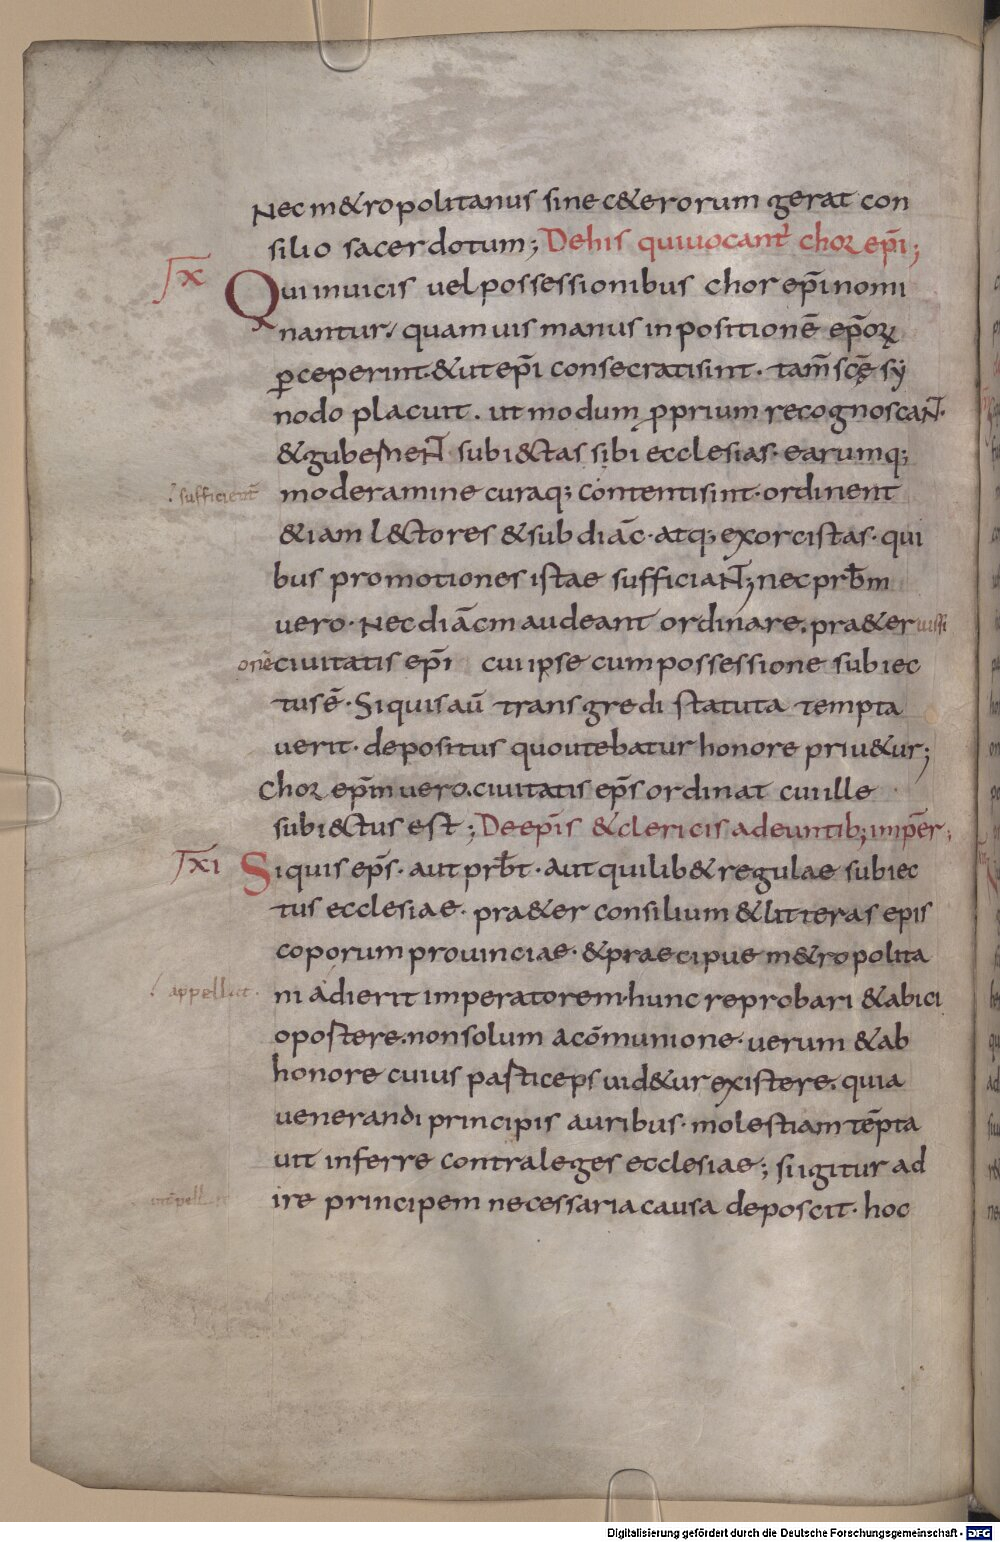 Nec m&ropolitanus sine c&erorum gerat con
silio sacerdotum; De his qui uocant᷑ chor ep̄i;
X
Qui in uicis uel possessionibus chor ep̄i nomi
nantur. quam uis manus inpositionē ep̄oꝝ
ꝑceperint. & ut ep̄i consecrati sint. tam̄ scę̄ sy
nodo placuit. ut modum ꝓprium recognoscant.
& gubernent subi&tas sibi ecclesias. earumq;
sufficient
moderamine curaq; contenti sint. ordinent
&iam l&tores & subdiāc. atq; exorcistas. qui
bus promotiones istae sufficiant; nec prb̄m
uero. Nec diācm audeant ordinare. pra&er iussi
onē ciuitatis ep̄i cui ipse cum possessione subiec
tus ē. Si quis aū transgredi statuta tempta
uerit. depositus quo utebatur honore priu&ur;
Chor ep̄m uero. ciuitatis ep̄s ordinat cui ille
subi&tus est; De ep̄is & clericis adeuntib; imp̄er;
XI
Si quis ep̄s. aut prb̄t. aut quilib& regulae subiec
tus ecclesiae. pra&er consilium & litteras epis
coporum prouinciae. & praecipue m&ropolita
appellat
ni adierit imperatorem. hunc reprobari & abici
oportere. non solum a cōmunione. uerum & ab
honore cuius particeps uid&ur existere. quia
uenerandi principis auribus. molestiam tēpta
uit inferre contra leges ecclesiae; si igitur ad
ire principem necessaria causa deposcit. hoc
Digitalisierung gefördert durch die Deutsche Forschungsgemeinschaft - DFG